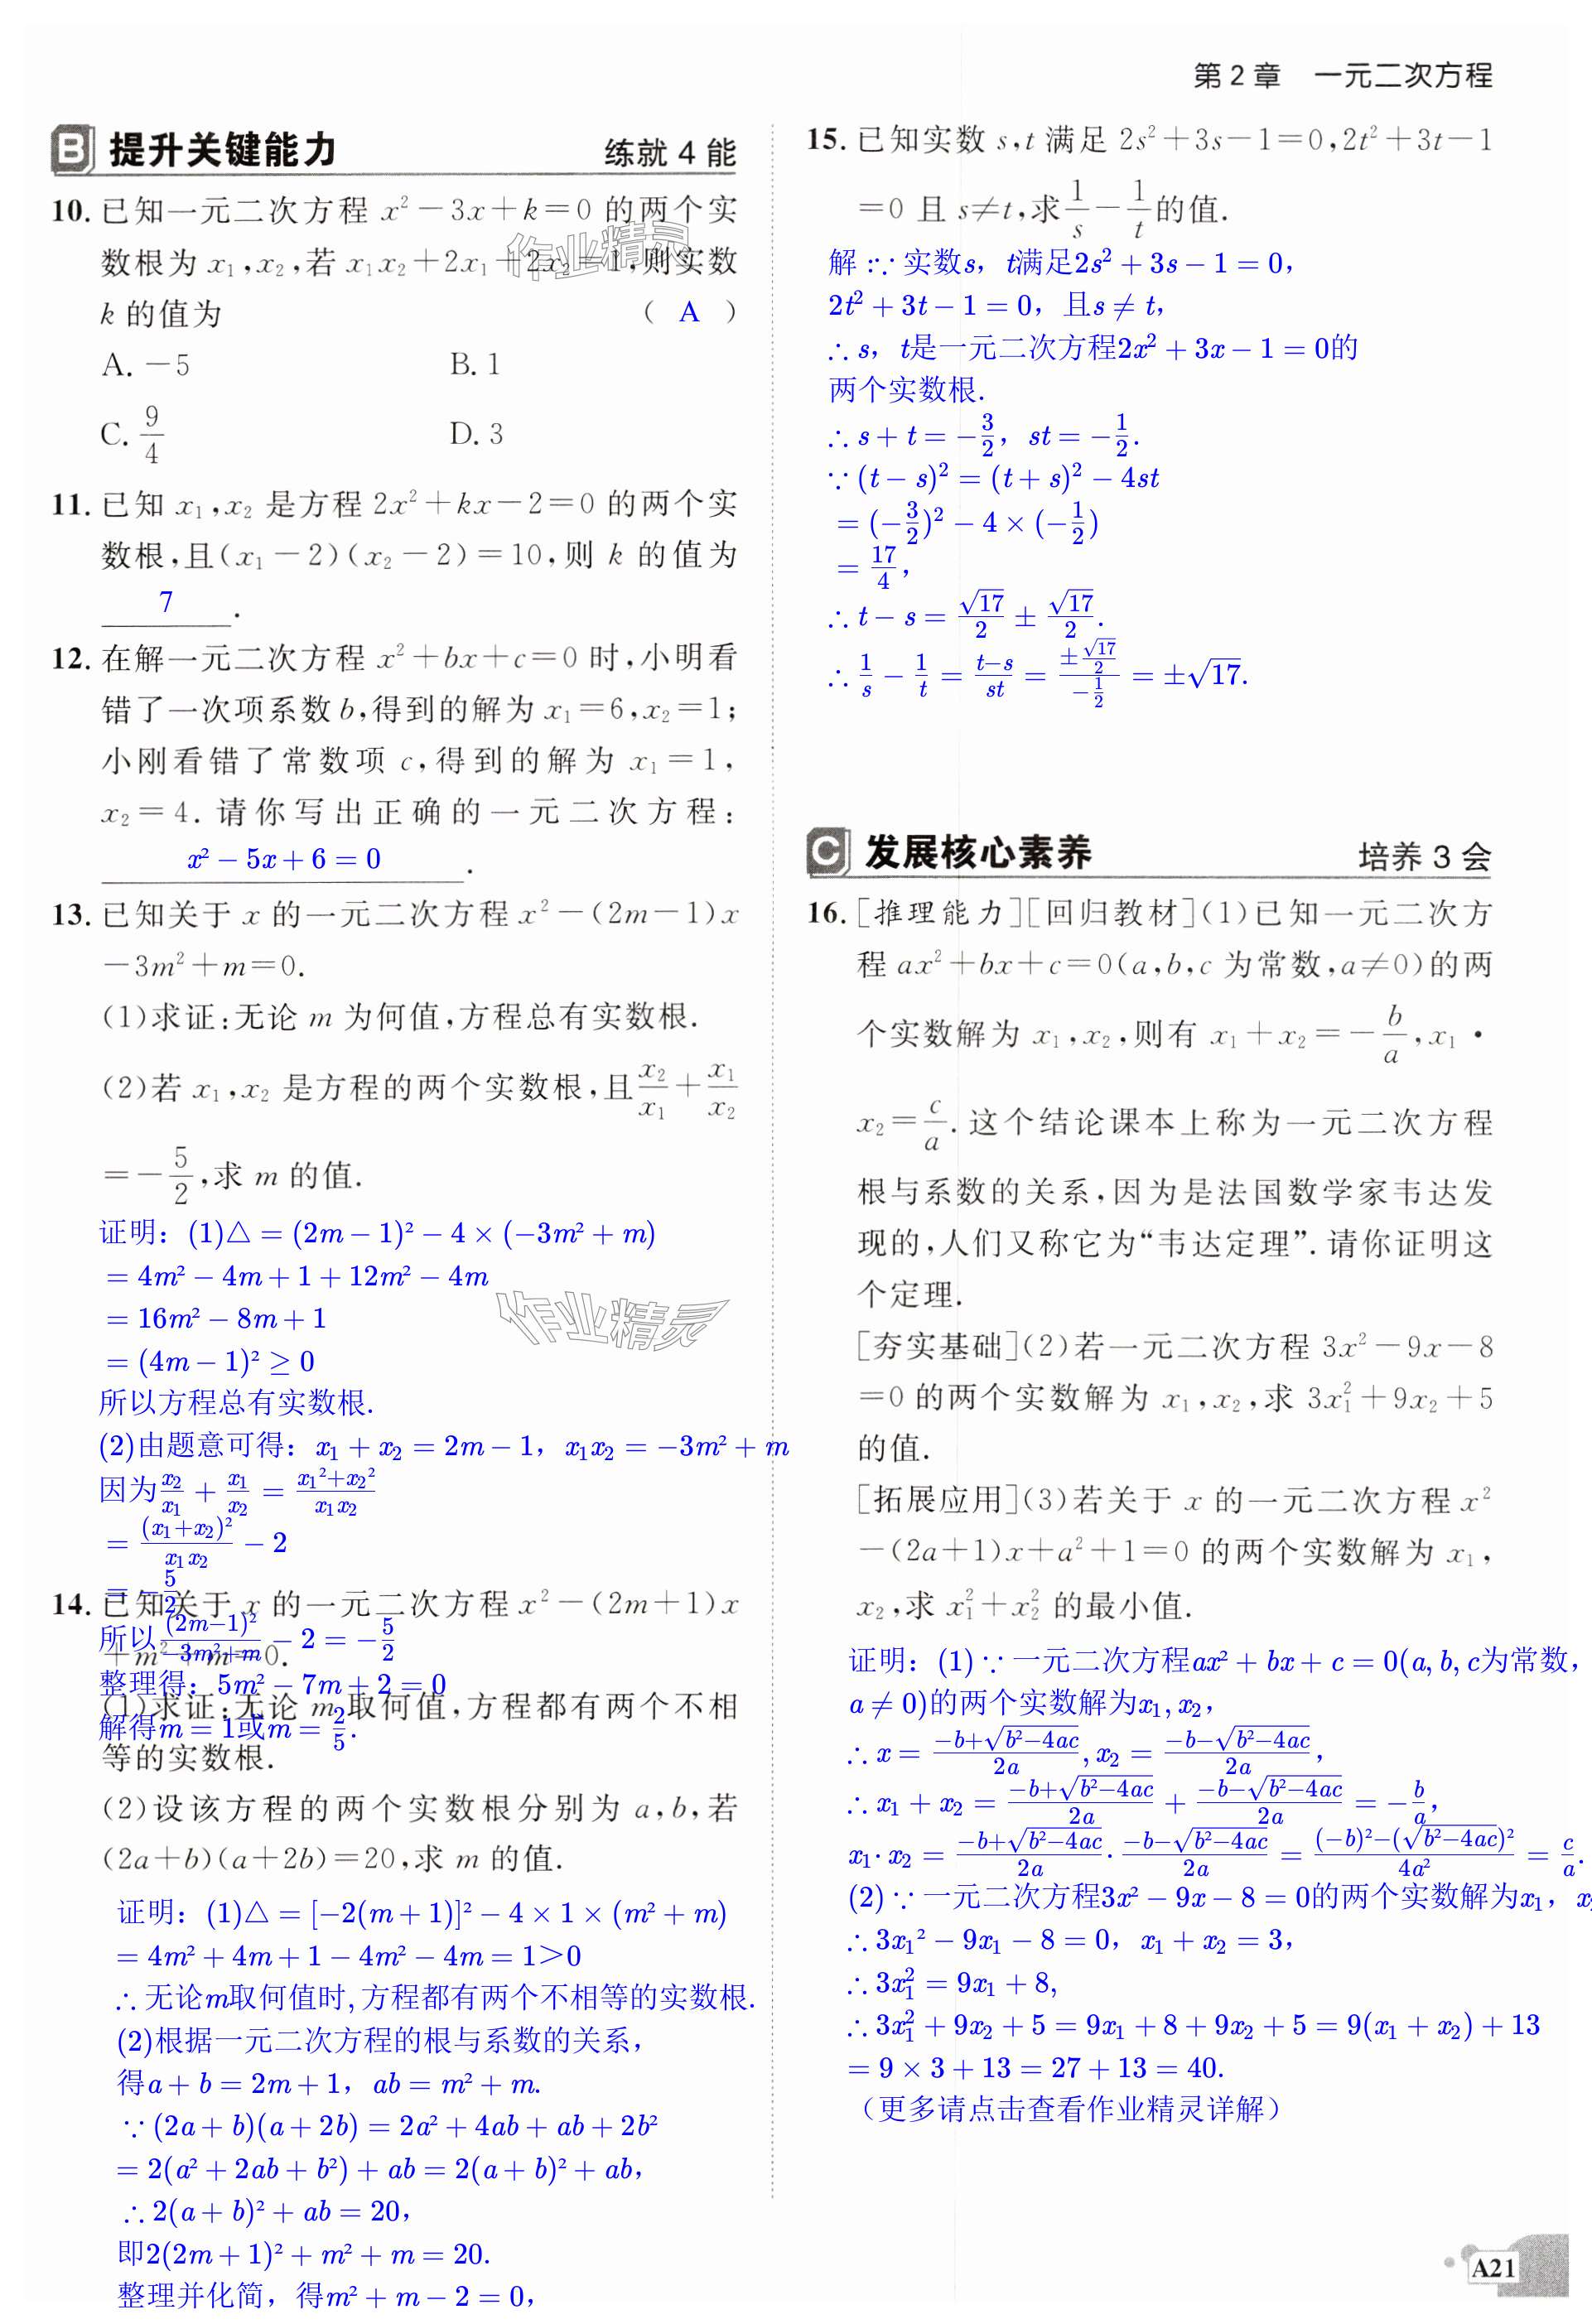 第2章　一元二次方程
B 提升关键能力　练就4能
10. 已知一元二次方程 x²－3x＋k＝0 的两个实
数根为 x₁,x₂,若 x₁x₂＋2x₁＋2x₂＝1,则实数
k 的值为（ A ）
A. －5　B. 1
C. 9/4　D. 3
11. 已知 x₁,x₂ 是方程 2x²＋kx－2＝0 的两个实
数根,且(x₁－2)(x₂－2)＝10,则 k 的值为
7 .
12. 在解一元二次方程 x²＋bx＋c＝0 时,小明看
错了一次项系数 b,得到的解为 x₁＝6,x₂＝1;
小刚看错了常数项 c,得到的解为 x₁＝1,
x₂＝4. 请你写出正确的一元二次方程:
x²－5x＋6＝0 .
13. 已知关于 x 的一元二次方程 x²－(2m－1)x
－3m²＋m＝0.
(1)求证:无论 m 为何值,方程总有实数根.
(2)若 x₁,x₂ 是方程的两个实数根,且 x₂/x₁＋x₁/x₂
＝－5/2,求 m 的值.
证明：(1)△＝(2m－1)²－4×(－3m²＋m)
＝4m²－4m＋1＋12m²－4m
＝16m²－8m＋1
＝(4m－1)²≥0
所以方程总有实数根.
(2)由题意可得：x₁＋x₂＝2m－1，x₁x₂＝－3m²＋m
因为 x₂/x₁＋x₁/x₂＝(x₁²＋x₂²)/(x₁x₂)
＝(x₁＋x₂)²/(x₁x₂)－2
＝－5/2
所以 (2m－1)²/(－3m²＋m)－2＝－5/2
整理得：5m²－7m＋2＝0
解得m＝1或m＝2/5.
14. 已知关于 x 的一元二次方程 x²－(2m＋1)x
＋m²＋m＝0.
(1)求证:无论 m 取何值,方程都有两个不相
等的实数根.
(2)设该方程的两个实数根分别为 a,b,若
(2a＋b)(a＋2b)＝20,求 m 的值.
证明：(1)△＝[－2(m＋1)]²－4×1×(m²＋m)
＝4m²＋4m＋1－4m²－4m＝1＞0
∴无论m取何值时,方程都有两个不相等的实数根.
(2)根据一元二次方程的根与系数的关系，
得a＋b＝2m＋1，ab＝m²＋m.
∵(2a＋b)(a＋2b)＝2a²＋4ab＋ab＋2b²
＝2(a²＋2ab＋b²)＋ab＝2(a＋b)²＋ab，
∴2(a＋b)²＋ab＝20，
即2(2m＋1)²＋m²＋m＝20.
整理并化简，得m²＋m－2＝0，
15. 已知实数 s,t 满足 2s²＋3s－1＝0,2t²＋3t－1
＝0 且 s≠t,求 1/s－1/t 的值.
解:∵实数s，t满足2s²＋3s－1＝0，
2t²＋3t－1＝0，且s≠t，
∴s，t是一元二次方程2x²＋3x－1＝0的
两个实数根.
∴s＋t＝－3/2，st＝－1/2.
∵(t－s)²＝(t＋s)²－4st
＝(－3/2)²－4×(－1/2)
＝17/4，
∴t－s＝√17/2±√17/2.
∴1/s－1/t＝(t－s)/st＝(±√17/2)/(－1/2)＝±√17.
C 发展核心素养　培养3会
16. [推理能力][回归教材](1)已知一元二次方
程 ax²＋bx＋c＝0(a,b,c 为常数,a≠0)的两
个实数解为 x₁,x₂,则有 x₁＋x₂＝－b/a,x₁·
x₂＝c/a.这个结论课本上称为一元二次方程
根与系数的关系,因为是法国数学家韦达发
现的,人们又称它为“韦达定理”.请你证明这
个定理.
[夯实基础](2)若一元二次方程 3x²－9x－8
＝0 的两个实数解为 x₁,x₂,求 3x₁²＋9x₂＋5
的值.
[拓展应用](3)若关于 x 的一元二次方程 x²
－(2a＋1)x＋a²＋1＝0 的两个实数解为 x₁,
x₂,求 x₁²＋x₂² 的最小值.
证明：(1)∵一元二次方程ax²＋bx＋c＝0(a,b,c为常数，
a≠0)的两个实数解为x₁,x₂，
∴x＝(－b＋√(b²－4ac))/2a,x₂＝(－b－√(b²－4ac))/2a，
∴x₁＋x₂＝(－b＋√(b²－4ac))/2a＋(－b－√(b²－4ac))/2a＝－b/a，
x₁·x₂＝(－b＋√(b²－4ac))/2a·(－b－√(b²－4ac))/2a＝((－b)²－(√(b²－4ac))²)/4a²＝c/a.
(2)∵一元二次方程3x²－9x－8＝0的两个实数解为x₁，x₂
∴3x₁²－9x₁－8＝0，x₁＋x₂＝3，
∴3x₁²＝9x₁＋8,
∴3x₁²＋9x₂＋5＝9x₁＋8＋9x₂＋5＝9(x₁＋x₂)＋13
＝9×3＋13＝27＋13＝40.
（更多请点击查看作业精灵详解）
作业精灵
作业精灵
A21